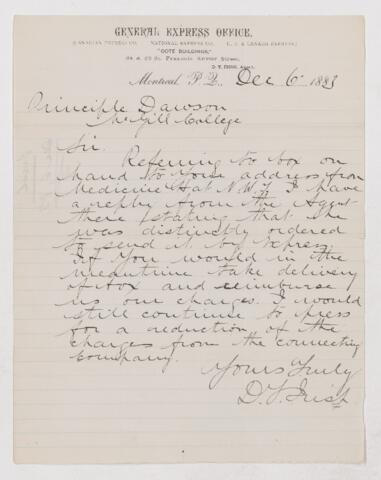 GENERAL EXPRESS OFFICE.
(CANADIAN EXPRESS CO. NATIONAL EXPRESS CO. U. S. & CANADA EXPRESS.)
"COTÉ BUILDINGS,"
St. Francois Xavier Street,
D. T. IRISH, Agent.
Montreal, P. Q., Dec 6 1883
Principle Dawson
McGill College
Sir.
Referring to box on
hand to your address from
Medicine Hat N.W.T. I have
a reply from the Agent
there stating that he
was distinctly ordered
to send it by Express
if you would in the
meantime take delivery
of box and reimburse
us our charges. I would
still continue to press
for a reduction of the
charges from the connecting
Company.
Yours Truly
D. T. Irish